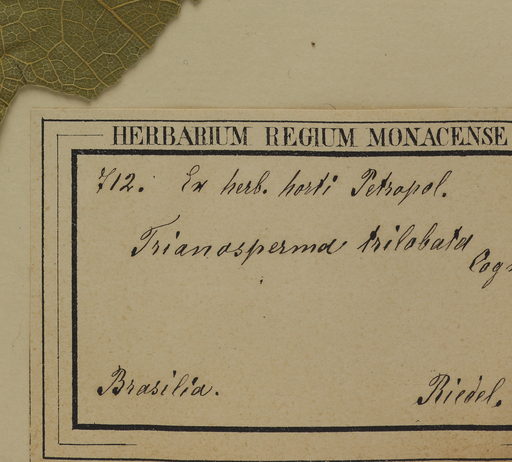 HERBARIUM REGIUM MONACENSE
712. Ex herb. horti Petropol.
Trianosperma trilobata
Cogn
Brasilia.
Riedel.